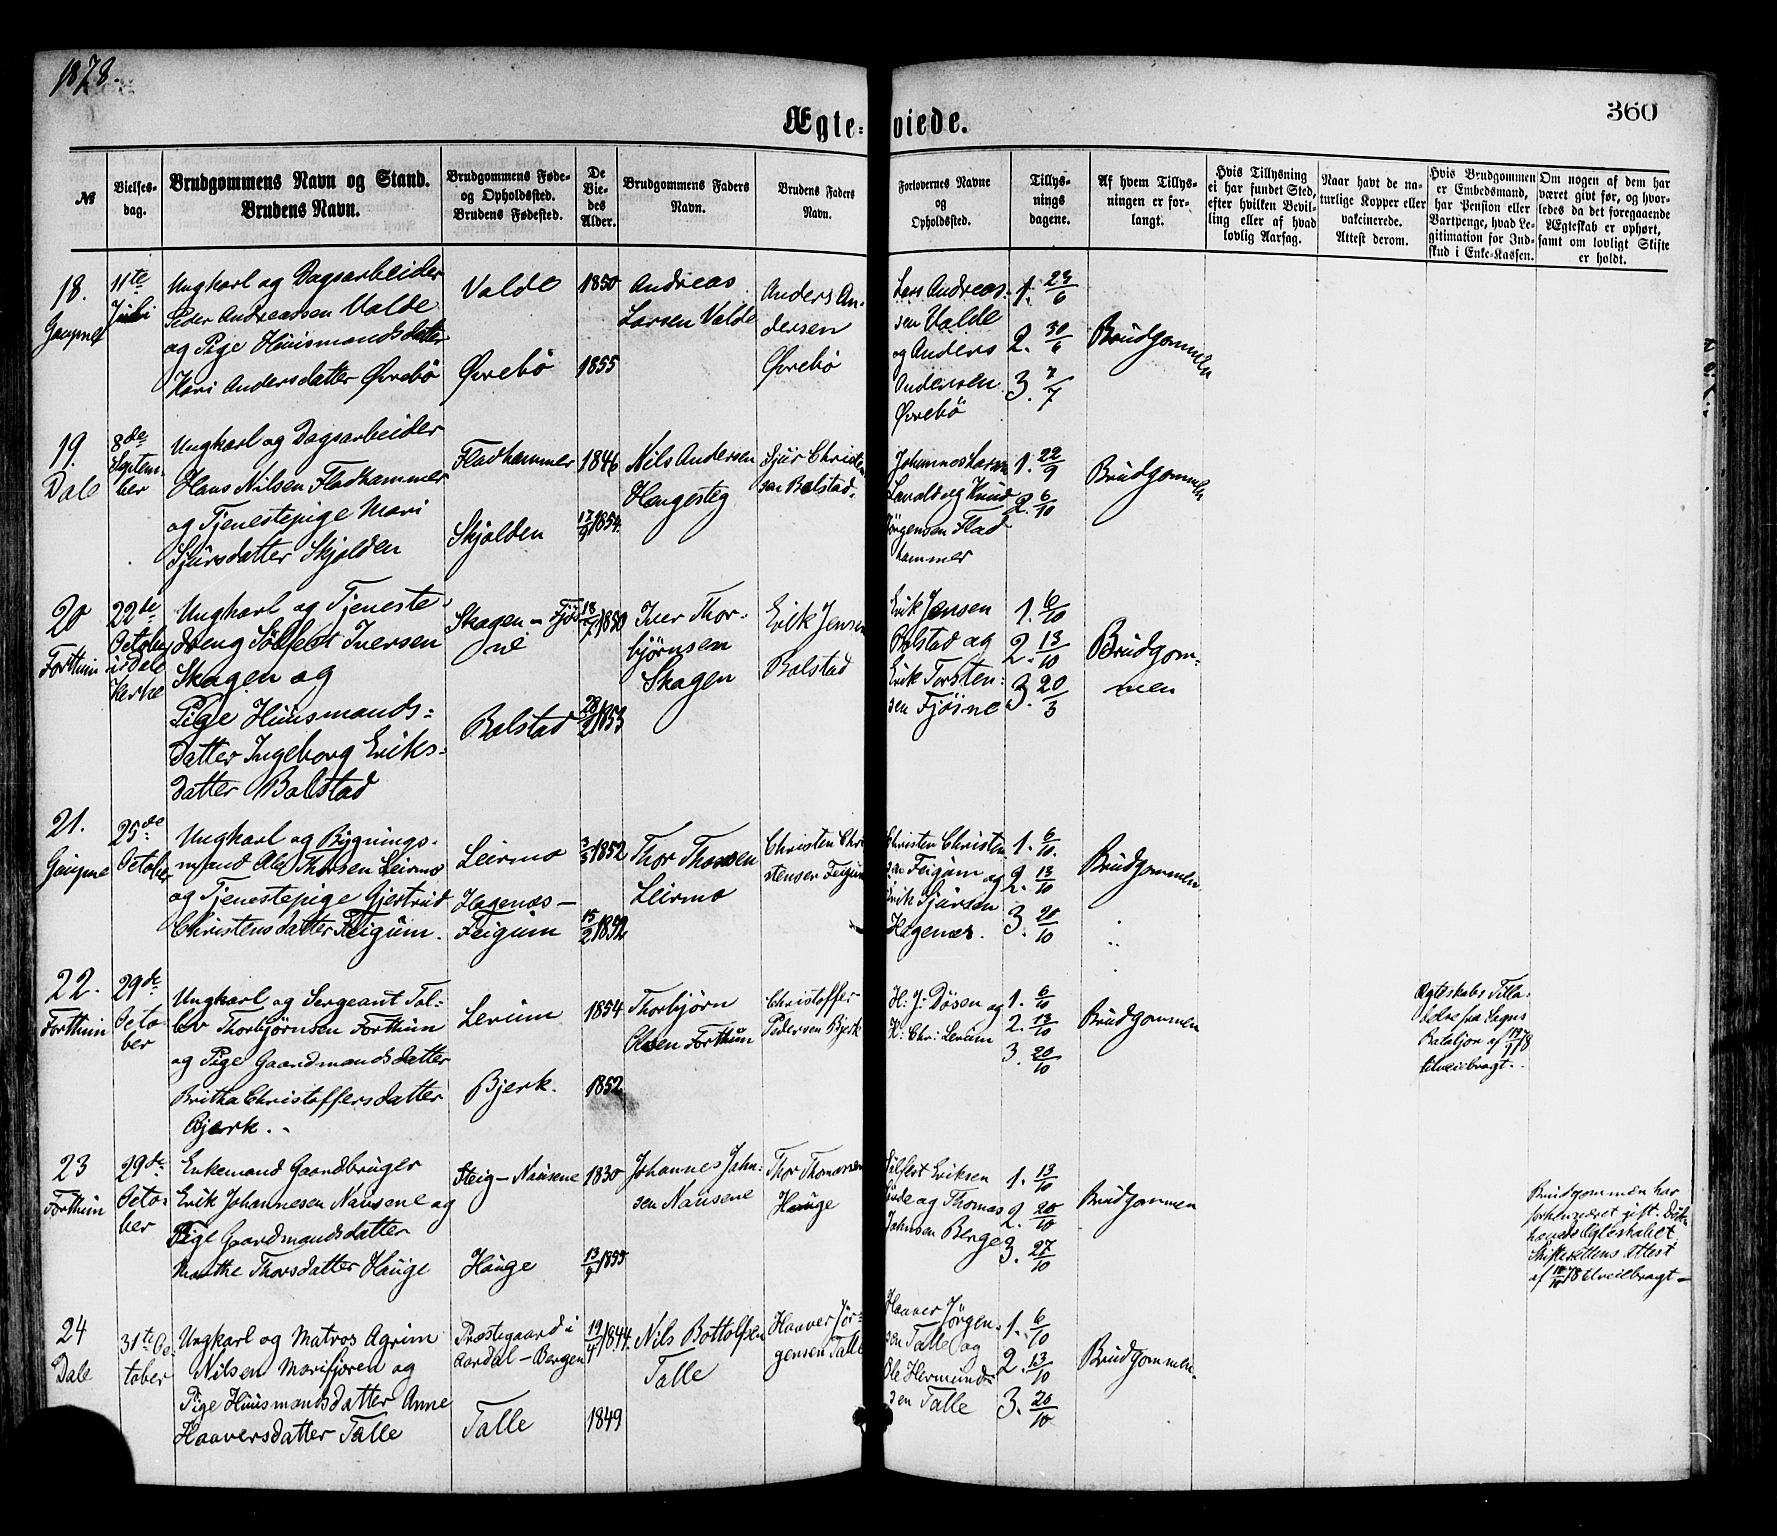 1878.
360
Ægte-viede.
№
Vielses-
dag.
Brudgommens Navn og Stand.
Brudens Navn.
Brudgommens Føde-
og Opholdssted.
Brudens Fødested.
De
Vie-
des
Alder.
Brudgommens Faders
Navn.
Brudens Faders
Navn.
Forlovernes Navne
og
Opholdssted.
Tillys-
nings
dagene.
Af hvem Tillys-
ningen er for-
langt.
Hvis Tillysning
ei har fundet Sted,
efter hvilken Bevil-
ling eller af hvad
lovlig Aarsag.
Naar havt de na-
turlige Kopper eller
vakcinerede.
Attest derom.
Hvis Brudgommen
er Embedsmand,
har Pension eller
Vartpenge, hvad Le-
gitimation for Ind-
skud i Enke-Kassen.
Om nogen af dem har
været givt før, og hvor-
ledes da det foregaaende
Ægteskab er ophørt,
samt om lovligt Skifte
er holdt.
18.
Gaupne
11te
Juli
Ungkarl og Dagsarbeider
Peder Andreassen Valde
og Pige Huusmandsdatter
Kari Andersdatter Øvrebö
Valde
Øvrebö
1850
1855
Andreas
Larsen Valde
Anders An-
dersen
Øvrebö
Lars Andreas-
sen Valde
og Anders
Andersen
Øvrebö
1. 23/6
2. 30/6
3. 7/7
Brudgommen
19.
Dale
8de
Septem-
ber
Ungkarl og Dagsarbeider
Hans Nilsen Fladhammer
og Tjenestepige Mari
Sjursdatter Skjolden
Fladhammer
Skjolden
1846
17/9 1854.
Nils Andersen
Hengesteg
Sjur Christen
sen Bolstad.
Johannes Larsen
og Knud
Jörgensen Flad
hammer
1. 22/9
2. 6/10
Brudgommen
20
Forthun
22de
October
i Dale
Kirke
Ungkarl og Tjeneste-
dreng Sölfest Iversen
Skagen og
Pige Huusmands-
datter Ingeborg Eriks-
datter Bolstad
Skagen - Fjös-
ne
Bolstad
18/7 1850
28/2 1853
Iver Thor-
bjørnsen
Skagen
Erik Jensen
Bolstad
Erik Jensen
Bolstad og
Erik Torsten-
sen Fjøsne
1. 6/10
2. 13/10
3. 20/3
Brudgom-
men
21.
Gaupne
25de
October
Ungkarl og Bygnings-
mand Ole Thorsen Leirmo
og Tjenestepige Gjertrud
Christensdatter Feigum.
Leirmo
Hagenæs -
Feigum
3/3 1852
15/2 1852
Thor Thorsen
Leirmo
Christen Chri
stensen Feigum
Christen Christen
sen Feigum og
Erik Sjursen
Hagenæs.
1. 6/10.
2. 13/10
3. 20/10
Brudgommen
22.
Forthun
29de
Octo-
ber
Ungkarl og Sergeant Tol-
lev Thorbjørnsen Forthun
og Pige Gaardmandsdatter
Britha Christoffersdatter
Bjerk.
Lerum
Bjerk.
1854
1852
Thorbjörn
Olsen Forthun
Christoffer
Pedersen Bjerk
H: J: Døsen og
K: Chr: Lerum
1. 6/10
2. 13/10
3. 20/10
Brudgommen
Ægteskabs Tilla-
delse fra Sogns
Bataljon af 19/9 78
tilveiebragt.
23
Forthun
29de
Octo-
ber
Enkemand Gaardbruger
Erik Johannesen Nausene og
Pige Gaardmandsdatter
Marthe Thorsdatter Hauge
Steig - Nausene
Hauge
1830
13/9 1855
Johannes John-
sen Nausene
Thor Thomassen
Hauge
Sölfest Eriksen
og Thomas
Johnsen Berge
1. 13/10
2. 20/10
3. 27/10
Brudgommen
Brudgommen har
forhen været gift.
Ægteskabet
Skifterettens Attest
af 14/10 78 tilveiebragt -
24
Dale
31te Oc
tober
Ungkarl og Matros Agrim
Nilsen Marifjøren og
Pige Huusmandsdatter Anne
Haaversdatter Talle
Præstegaard i
Aardal - Bergen
Talle
19/4 1844.
1849
Nils Bottolfsen
Talle
Haaver Jör-
gensen Talle
Haaver Jørgen-
sen Talle og
Ole Hermund-
sen Talle
1. 6/10
2. 13/10
3. 20/10
Brudgommen.